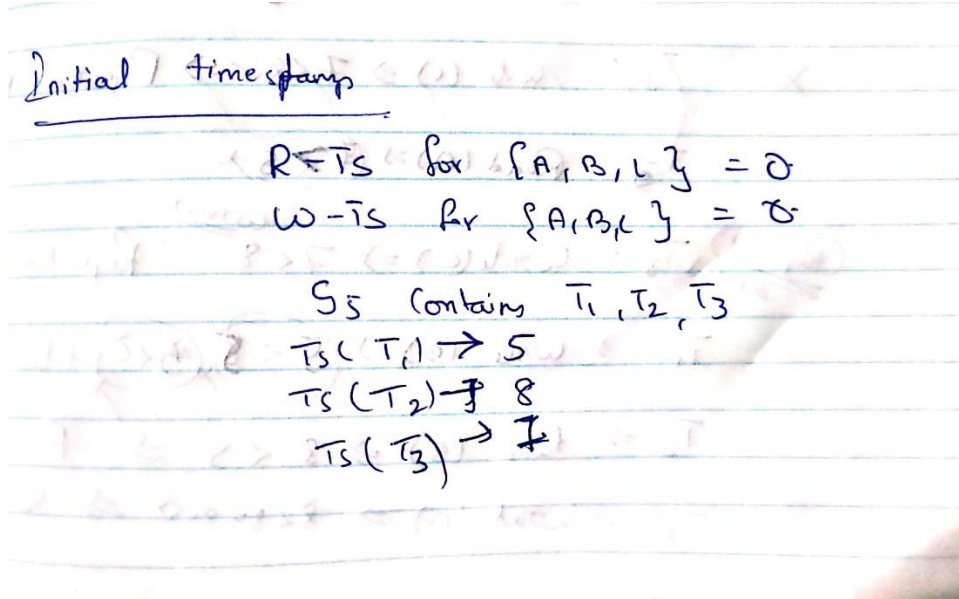 Initial timestamp
R-TS for {A, B, C} = 0
W-TS for {A, B, C} = 0
S5 Contains T1, T2, T3
TS(T1) → 5
TS(T2) → 8
TS(T3) →